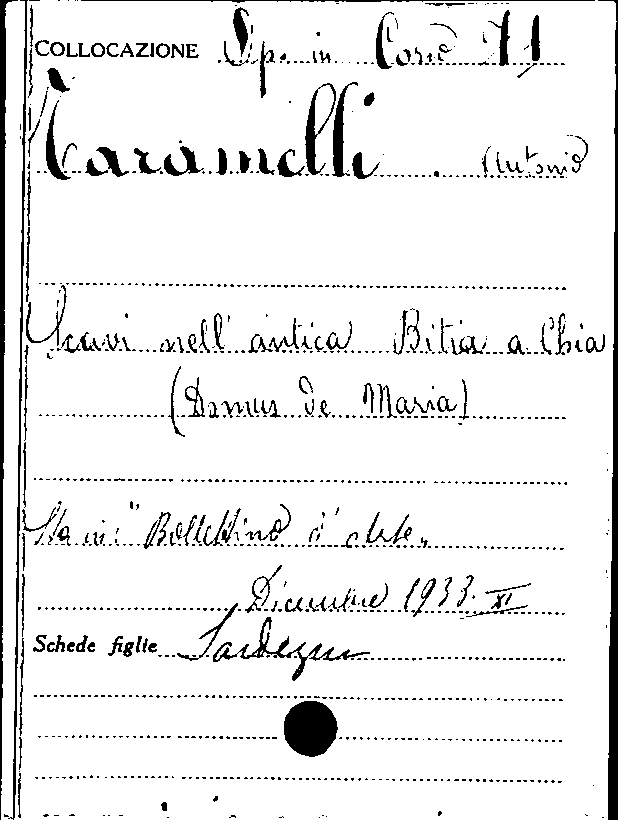 COLLOCAZIONE Sp. in Corso
Taramelli. Antonio
Scavi nell' antica Bitia a Chia
(Domus de Maria)
Sta in: "Bollettino d' Arte„
Dicembre 1933. XI
Schede figlie Sardegna